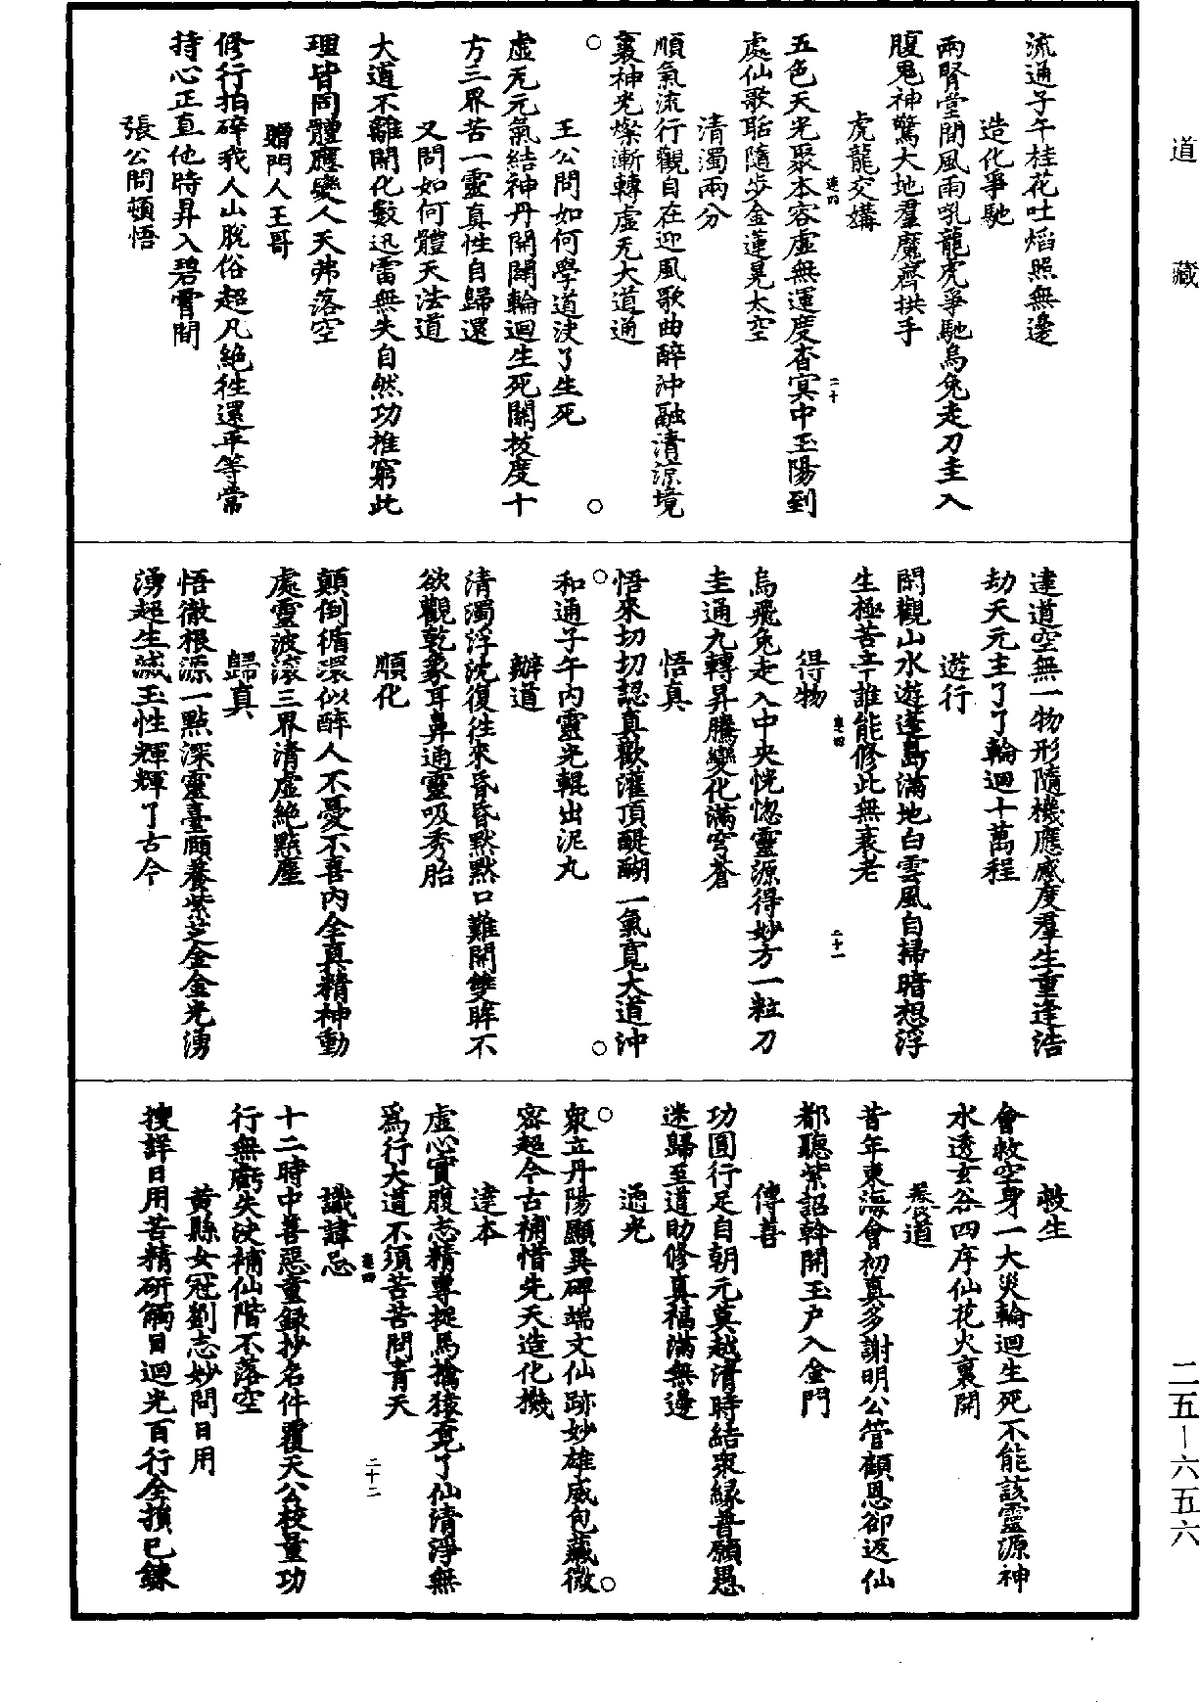 道藏
流通子午桂花吐焰照無邊
造化爭馳
兩腎堂間風雨吼龍虎爭馳烏兔走刀圭入
腹鬼神驚大地羣魔齊拱手
虎龍交媾
五色天光聚本容虛無運度杳冥中玉陽到
處仙歌聒隨步金蓮晃太空
清濁兩分
順氣流行觀自在迎風歌曲醉沖融清涼境
裏神光燦漸轉虛无大道通
王公問如何學道決了生死
虛无元氣結神丹開闢輪迴生死關拔度十
方三界苦一靈真性自歸還
又問如何體天法道
大道不離開化數迅雷無失自然功推窮此
理皆同體應變人天弗落空
贈門人王哥
修行拍碎我人山脫俗超凡絕往還平等常
持心正直他時昇入碧霄間
張公問頓悟
達道空無一物形隨機應感度羣生重逢浩
劫天元主了了輪迴十萬程
遊行
閑觀山水遊蓬島滿地白雲風自掃暗想浮
生極苦辛誰能修此無衰老
得物
烏飛兔走入中央恍惚靈源得妙方一粒刀
圭通九轉昇騰變化滿穹蒼
悟真
悟來切切認真歡灌頂醍醐一氣寬大道沖
和通子午內靈光輥出泥丸
辦道
清濁浮沈復往來昏昏默默口難開雙眸不
欲觀乾象耳鼻通靈吸秀胎
順化
顛倒循環似醉人不憂不喜內全真精神動
處靈波滾三界清虛絕點塵
歸真
悟徹根源一點深靈臺頤養紫芝金金光湧
湧超生滅玉性輝輝了古今
救生
會救空身一大災輪迴生死不能該靈源神
水透玄谷四序仙花火裏開
養道
昔年東海會初真多謝明公管顧恩卻返仙
都聽紫詔斡開玉戶入金門
傳善
功圓行足自朝元莫越清時結衆緣普願愚
迷歸至道助修真福滿無邊
遁光
衆立丹陽顯異碑端文仙跡妙雄威包藏微
密超今古補惜先天造化機
達本
虛心實腹志精專捉馬擒猿更了仙清淨無
爲行大道不須苦苦問青天
識諱忌
十二時中善惡童録抄名件覆天公校量功
行無虧失決補仙階不落空
黃縣女冠劉志妙問日用
搜詳日用苦精研觸目迴光百行全損己鍊
二五—六五六